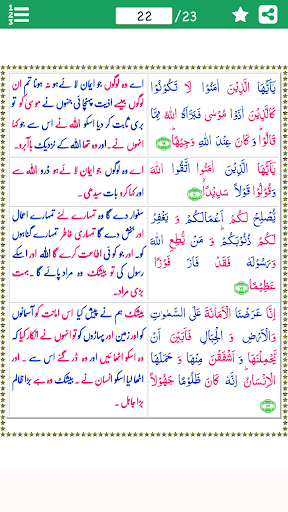 1
2
3
22
/23
يَآيُّهَا الَّذِيْنَ اٰمَنُوْا لَا تَكُوْنُوْا
كَالَّذِيْنَ اٰذَوْا مُوْسٰى فَبَرَّاَهُ اللّٰهُ مِمَّا
قَالُوْا ؕ وَ كَانَ عِنْدَ اللّٰهِ وَجِيْهًا
اے وہ لوگوں جو ایمان لائے ہو نہ ہونا تم ان
لوگوں جیسے اذیت پہنچائی جنہوں نے موسیٰ کو
بری ثابت کر دیا اسکو اللہ نے اس سے جو کہا
انہوں نے ۔ اور وہ تھا اللہ کے نزدیک باآبرو۔
يٰۤاَيُّهَا الَّذِيْنَ اٰمَنُوا اتَّقُوا اللّٰهَ
وَقُوْلُوْا قَوْلًا سَدِيْدًا
اے وہ لوگوں جو ایمان لائے ہو ڈرو اللہ سے
اور کہا کرو بات سیدھی ۔
يُّصْلِحْ لَكُمْ اَعْمَالَكُمْ وَ يَغْفِرْ
لَكُمْ ذُنُوْبَكُمْ ؕ وَ مَنْ يُّطِعِ اللّٰهَ
وَرَسُوْلَهٗ فَقَدْ فَازَ فَوْزًا
عَظِيْمًا
سنوار دے گا وہ تمہارے لئے تمہارے اعمال
اور بخش دے گا تمہاری خاطر تمہارے گناہوں
کو ۔ اور جو کوئی اطاعت کرے گا اللہ اور اسکے
رسول کی تو بیشک وہ مراد پائے گا ۔ بہت
بڑی مراد۔
اِنَّا عَرَضْنَا الْاَمَانَةَ عَلَى السَّمٰوٰتِ
وَالْاَرْضِ وَ الْجِبَالِ فَاَبَيْنَ اَنْ
يَّحْمِلْنَهَا وَ اَشْفَقْنَ مِنْهَا وَ حَمَلَهَا
الْاِنْسَانُ ؕ اِنَّهٗ كَانَ ظَلُوْمًا جَهُوْلًا
بیشک ہم نے پیش کیا اس امانت کو آسمانوں
کو اور زمین اور پہاڑوں کو تو انہوں نے انکار کیا کہ
وہ اسکو اٹھائیں اور وہ ڈر گئے اس سے ۔ اور
اٹھا لیا اسکو انسان نے ۔ بیشک وہ ہے بڑا ظالم
بڑا جاہل ۔